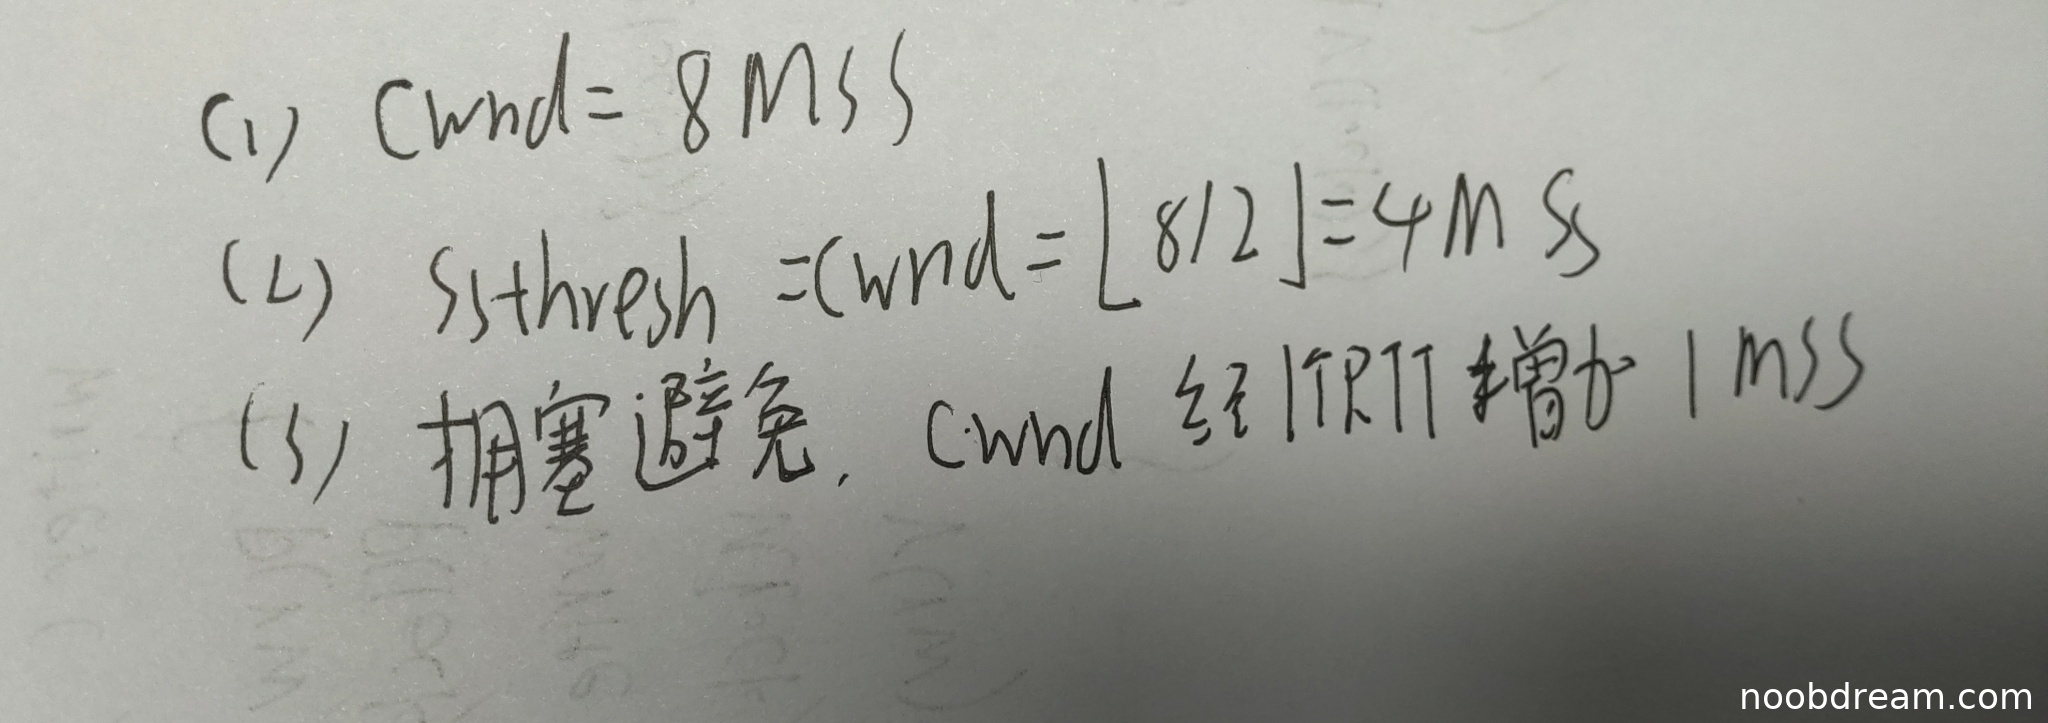 (1) cwnd = 8 MSS
(2) ssthresh = cwnd = ⌊8/2⌋ = 4 MSS
(3) 拥塞避免. cwnd 经1个RTT 增加 1 MSS
noobdream.com